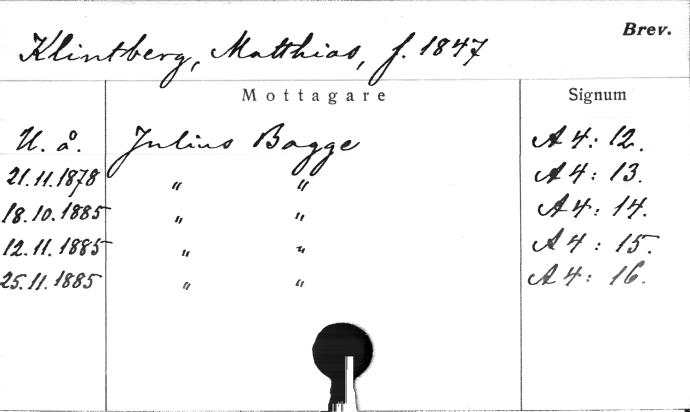 Brev.
Klintberg, Matthias, f. 1847
Mottagare Signum
U. å. Julius Bagge A 4: 12.
21.11.1878 " " A 4: 13.
18.10.1885 " " A 4: 14.
12.11.1885 " " A 4: 15.
25.11.1885 " " A 4: 16.